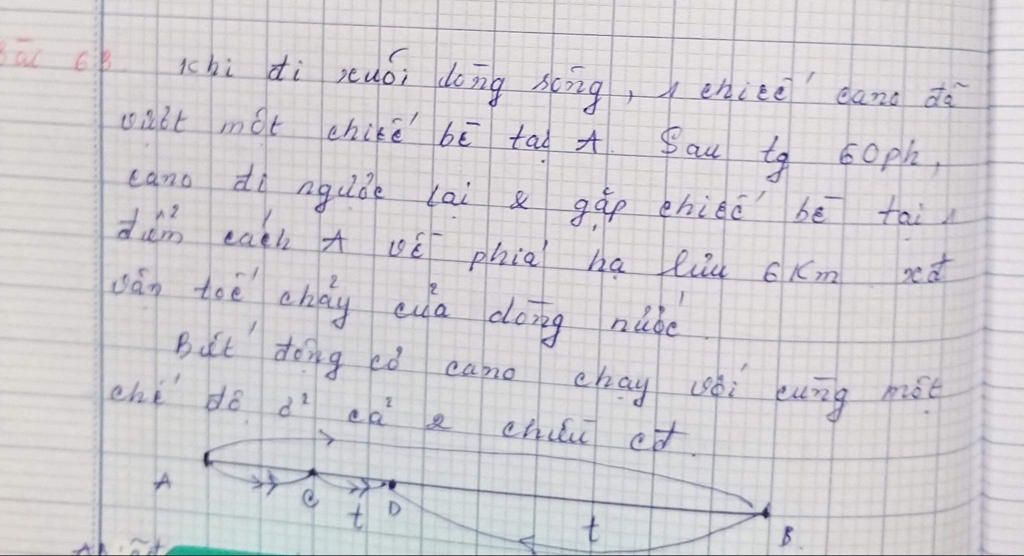 Bài 6B. Khi đi xuôi dòng sông, 1 chiếc cano đã
vượt một chiếc bè tại A. Sau tg 60ph,
cano đi ngược lại & gặp chiếc bè tại 1
điểm cách A về phía hạ lưu 6Km xđ
vận tốc chảy của dòng nước
Biết động cơ cano chạy với cùng một
chế độ ở cả 2 chiều cđ.
A C t D t B